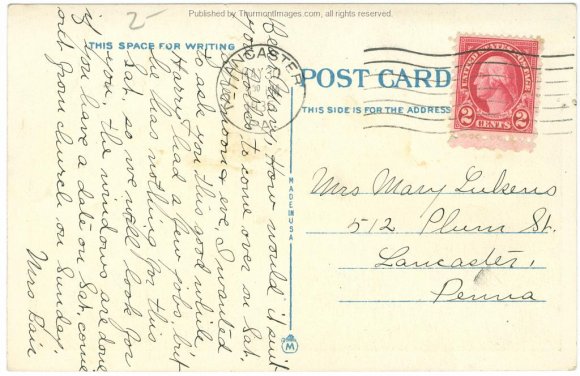 Published by ThurmontImages.com, all rights reserved.
2-
THIS SPACE FOR WRITING
Dear Mary, How would it suit
you folks to come over on Sat.
afternoon & eve, I wanted
to ask you this good while
Harry had a few jobs, but
he has nothing for this
Sat. so we will look for
you. The windows are done
if you have a date on Sat. come
out from church on Sunday.
Mrs
LANCASTER
PA
MADE IN USA
M
POST CARD
THIS SIDE IS FOR THE ADDRESS
UNITED STATES POSTAGE
2 CENTS 2
Mrs Mary Lukens
512 Plum St.
Lancaster,
Penna